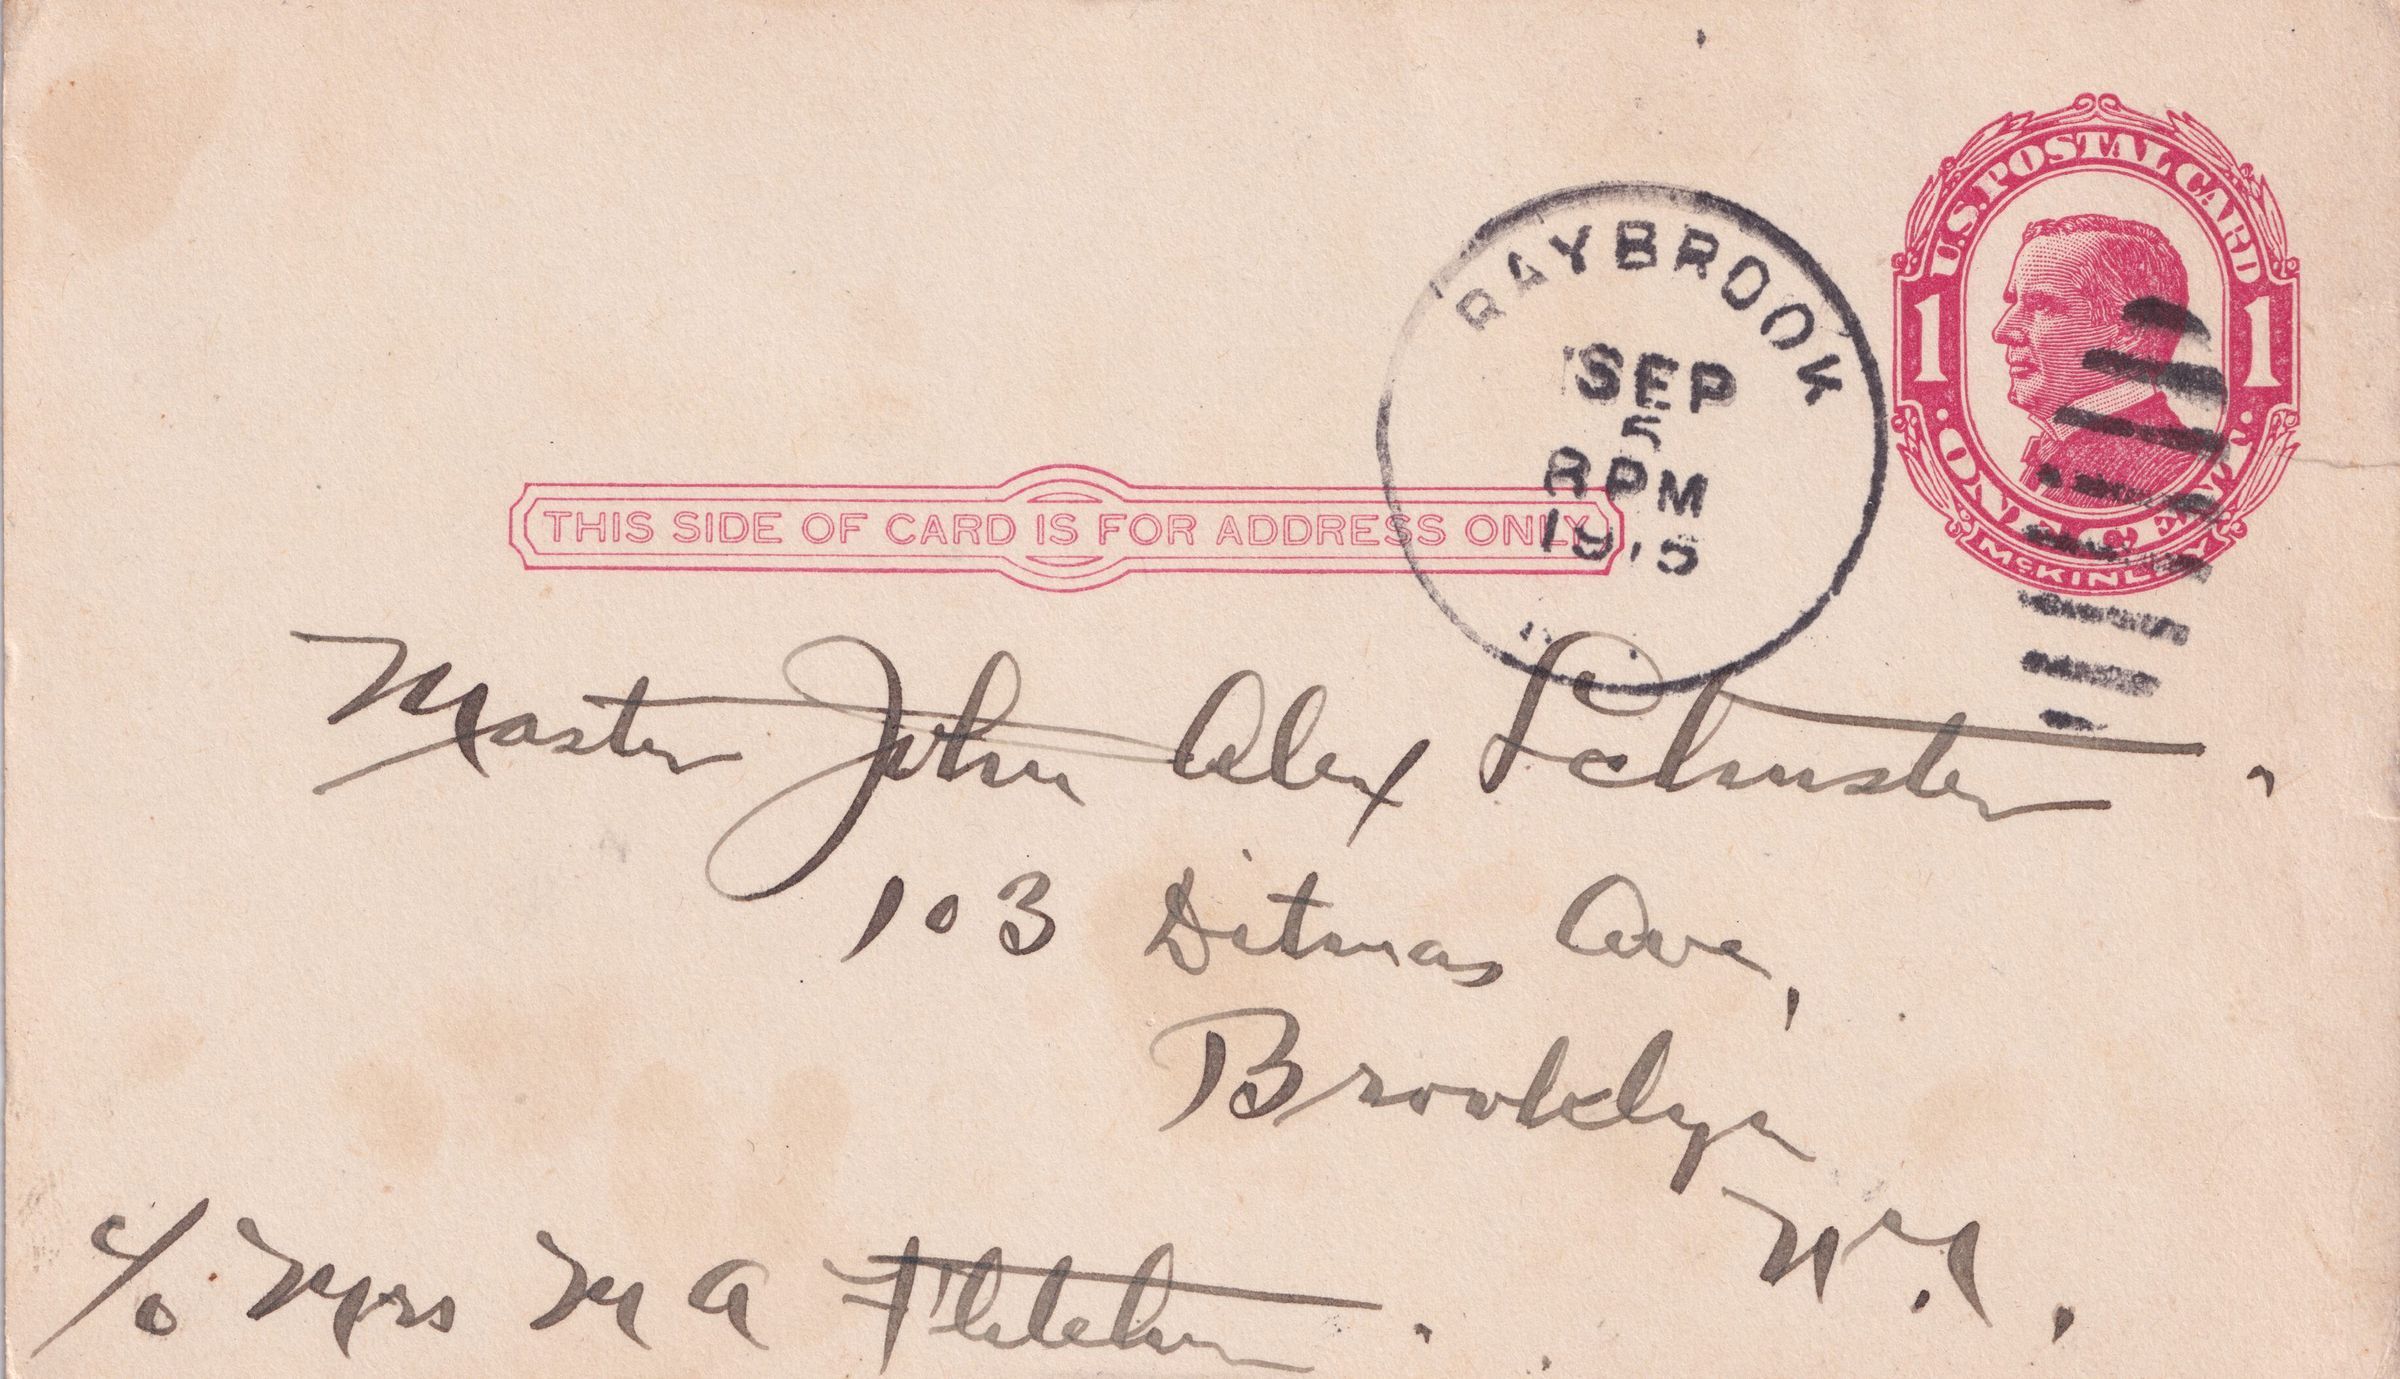 U.S. POSTAL CARD
1 1
ONE CENT
McKINLEY
RAYBROOK
SEP
5
PM
1915
THIS SIDE OF CARD IS FOR ADDRESS ONLY
Master John Alex Schuster.
103 Ditmas Ave,
Brooklyn
N.Y.
c/o Mrs M A Fletcher.